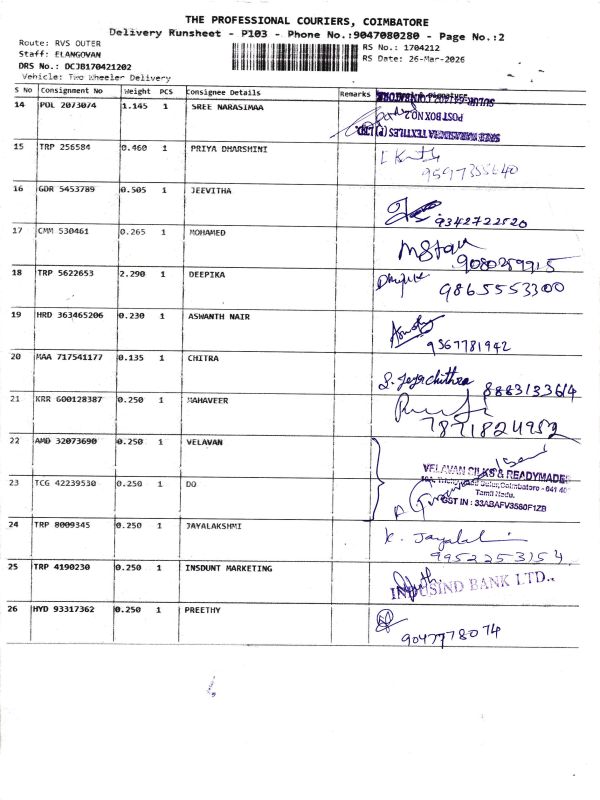 THE PROFESSIONAL COURIERS, COIMBATORE
Delivery Runsheet - P103 - Phone No.:9047080280 - Page No.:2
Route: RVS OUTER
Staff: ELANGOVAN
DRS No.: DCJB170421202
Vehicle: Two Wheeler Delivery
RS No.: 1704212
RS Date: 26-Mar-2026
S No Consignment No Weight PCS Consignee Details Remarks & Signature
14 POL 2073074 1.145 1 SREE NARASIMAA
POST BOX NO.2
SREE NARASIMHA TEXTILES (P) LTD.
15 TRP 256584 0.460 1 PRIYA DHARSHINI
16 GDR 5453789 0.505 1 JEEVITHA
9342722520
17 CMM 530461 0.265 1 MOHAMED
9080259915
18 TRP 5622653 2.290 1 DEEPIKA
9865553300
19 HRD 363465206 0.230 1 ASWANTH NAIR
9567781942
20 MAA 717541177 0.135 1 CHITRA
S. Jeyachithra 8883133614
21 KRR 600128387 0.250 1 MAHAVEER
7871824952
22 AMD 32073690 0.250 1 VELAVAN
VELAVAN SILKS & READYMADES
23 TCG 42239530 0.250 1 DO
Tamil Nadu.
GST IN : 33ABAFV3560F1ZB
24 TRP 8009345 0.250 1 JAYALAKSHMI
K. Jayalakshmi
9952253154
25 TRP 4190230 0.250 1 INSDUNT MARKETING
INDUSIND BANK LTD.
26 HYD 93317362 0.250 1 PREETHY
9047778074